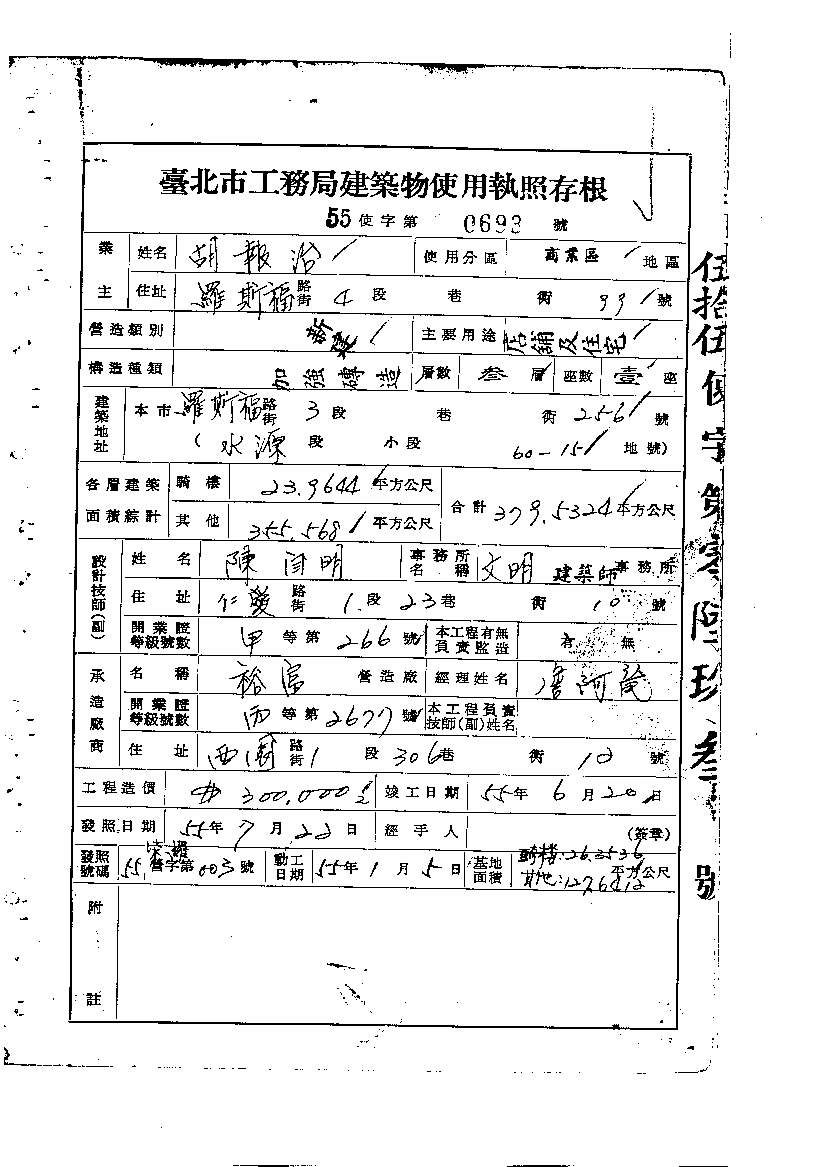 臺北市工務局建築物使用執照存根
55使字第 0693 號
業主 姓名 胡報治 使用分區 商業區 地區
住址 羅斯福路街 4段 巷 衖 99 號
營造類別 新建 主要用途 店舖及住宅
構造種類 加強磚造 層數 叁層 座數 壹座
建築地址 本市 羅斯福路街 3段 巷 衖 256 號
(水源段 小段 60-15 地號)
各層建築面積綜計 騎樓 23.9644 平方公尺 合計 379.5324 平方公尺
其他 355.568 平方公尺
設計技師(副) 姓名 陳 明 事務所名稱 文明 建築師事務所
住址 仁愛路街 1段 23巷 衖 10 號
開業證等級號數 甲等第 266 號 本工程有無負責監造 有 無
承造廠商 名稱 裕 營造廠 經理姓名 阿
開業證等級號數 丙等第 2677 號 本工程負責技師(副)姓名
住址 西園路街 1段 306巷 衖 12 號
工程造價 300,000 竣工日期 55年 6月 20日
發照日期 55年 7月 22日 經手人 (簽章)
發照號碼 55 營字第 003 號 動工日期 55年 1月 5日 基地面積 騎樓:26.3536 其他:127.6412 平方公尺
附註
伍拾伍使字第零陸玖叁號